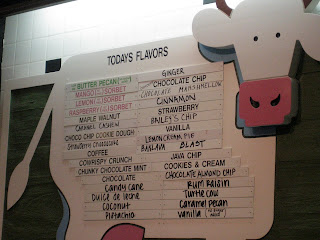 TODAYS FLAVORS
BUTTER PECAN
MANGO SORBET
LEMON SORBET
RASPBERRY SORBET
MAPLE WALNUT
CARAMEL CASHEW
CHOCO CHIP COOKIE DOUGH
Strawberry Cheesecake
COFFEE
COW CRISPY CRUNCH
CHUNKY CHOCOLATE MINT
CHOCOLATE
Candy Cane
Dulce de leche
Coconut
Pistachio
GINGER
CHOCOLATE CHIP
CHOCOLATE MARSHMALLOW
CINNAMON
STRAWBERRY
BAILEY'S CHIP
VANILLA
LEMON CREAM PIE
BANANA BLAST
JAVA CHIP
COOKIES & CREAM
CHOCOLATE ALMOND CHIP
Rum Raisin
Turtle Cow
Caramel pecan
Vanilla no sugar added